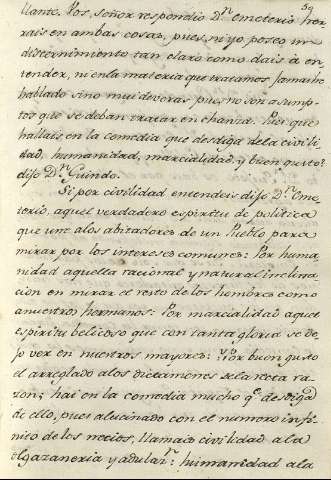 59
llante. Vos, señor respondio D.n Emeterio her-
rais en ambas cosas, pues ni yo poseo un
discernimiento tan claro como dais à en-
tender, ni en la materia que tratamos jamas he
hablado sino mui deveras pues no son asump-
tos que se deban tratar en chanza. Pues que
hallais en la comedia que desdiga de la civili-
dad, humanidad, marcialidad, y buen gusto?
dijo D.n Guindo.
Si por civilidad entendeis dijo D.n Eme-
terio, aquel verdadero espiritu de politica
que une a los abitadores de un Pueblo para
mirar por los intereses comunes: Por huma-
nidad aquella racional y natural inclina-
cion en mirar el resto de los hombres como
a nuestros hermanos: Por marcialidad aquel
espiritu belicoso que con tanta gloria se de-
jo ver en nuestros mayores: Y por buen gusto
el arreglado a los dictamenes de la recta ra-
zon; hai en la comedia mucho q.e desdiga
de ello, pues alucinado con el numero infi-
nito de los necios, llamais civilidad a la
olgazaneria y adulac.n: humanidad a la